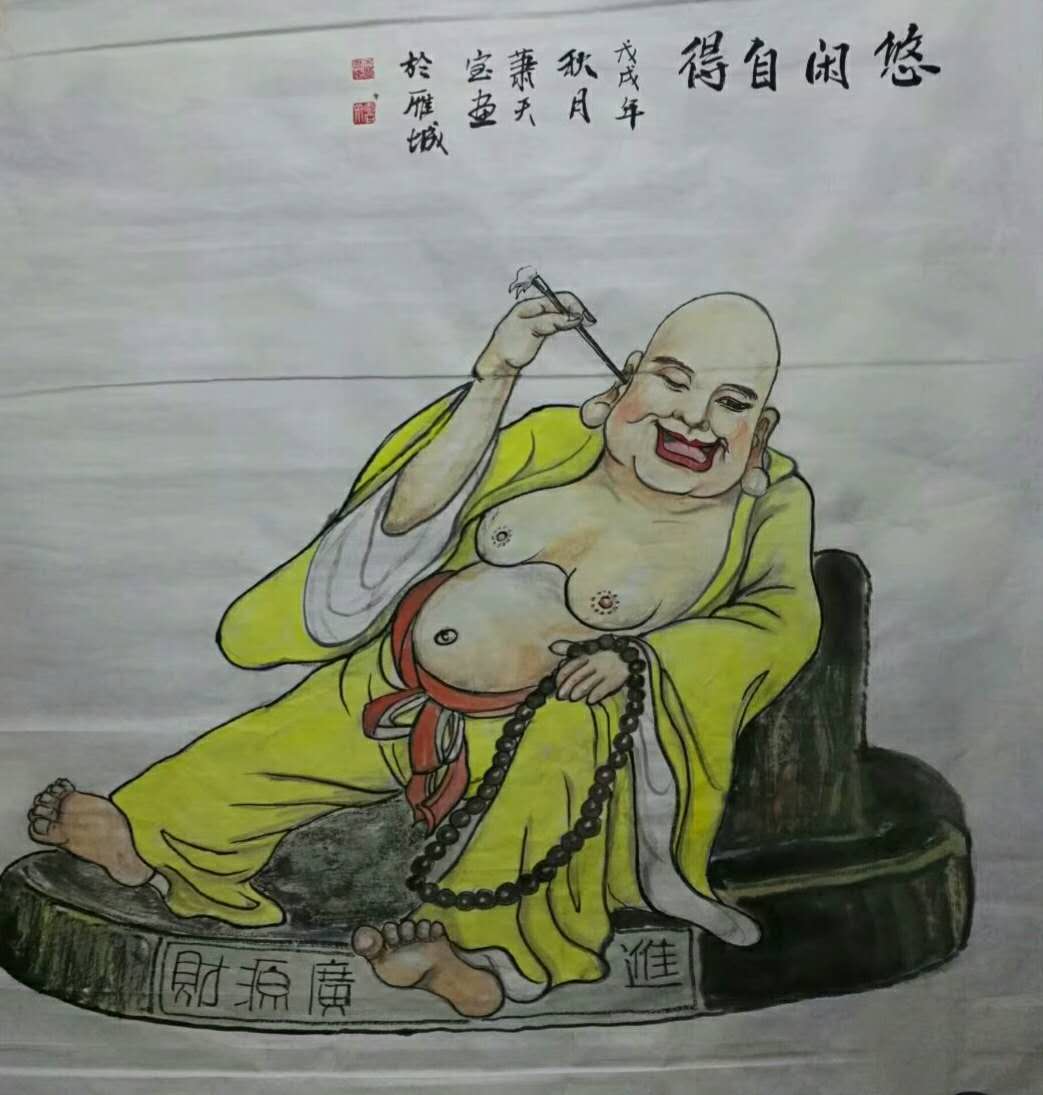 悠闲自得
戊戌年
秋月
萧天
宝画
於雁城
財源廣進